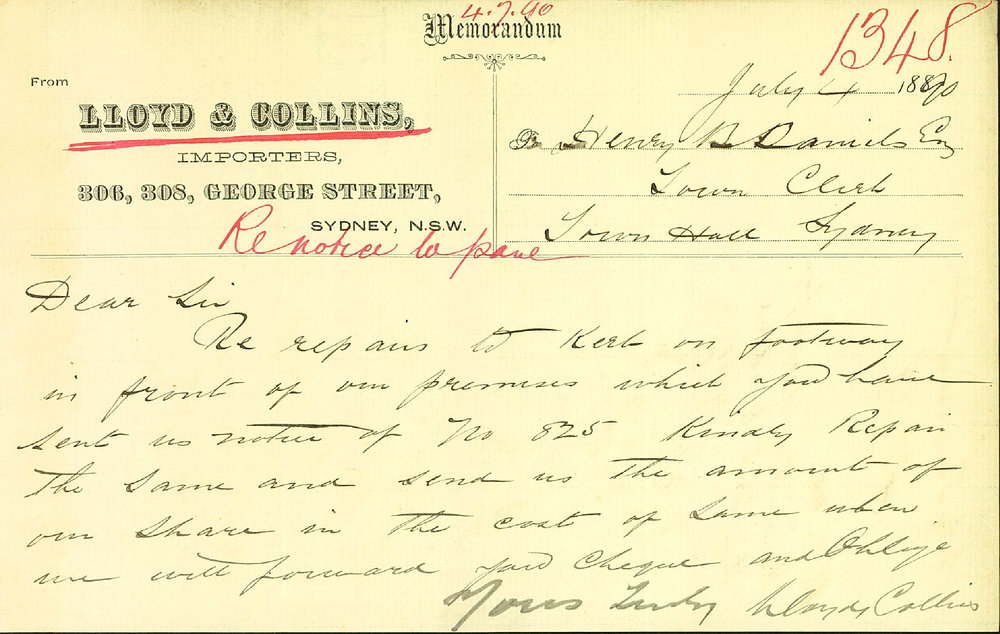 4.7.90
Memorandum
1348.
From
LLOYD & COLLINS,
IMPORTERS,
306, 308, GEORGE STREET,
SYDNEY, N.S.W.
Re notice to pave
July 4 1890
To Henry B Daniels Esq
Town Clerk
Town Hall Sydney
Dear Sir
Re repairs to Kerb on footway
in front of our premises which you have
sent us notice of No 825 Kindly Repair
the same and send us the amount of
our share in the cost of same when
we will forward you Cheque and Oblige
Yours Truly Lloyd & Collins